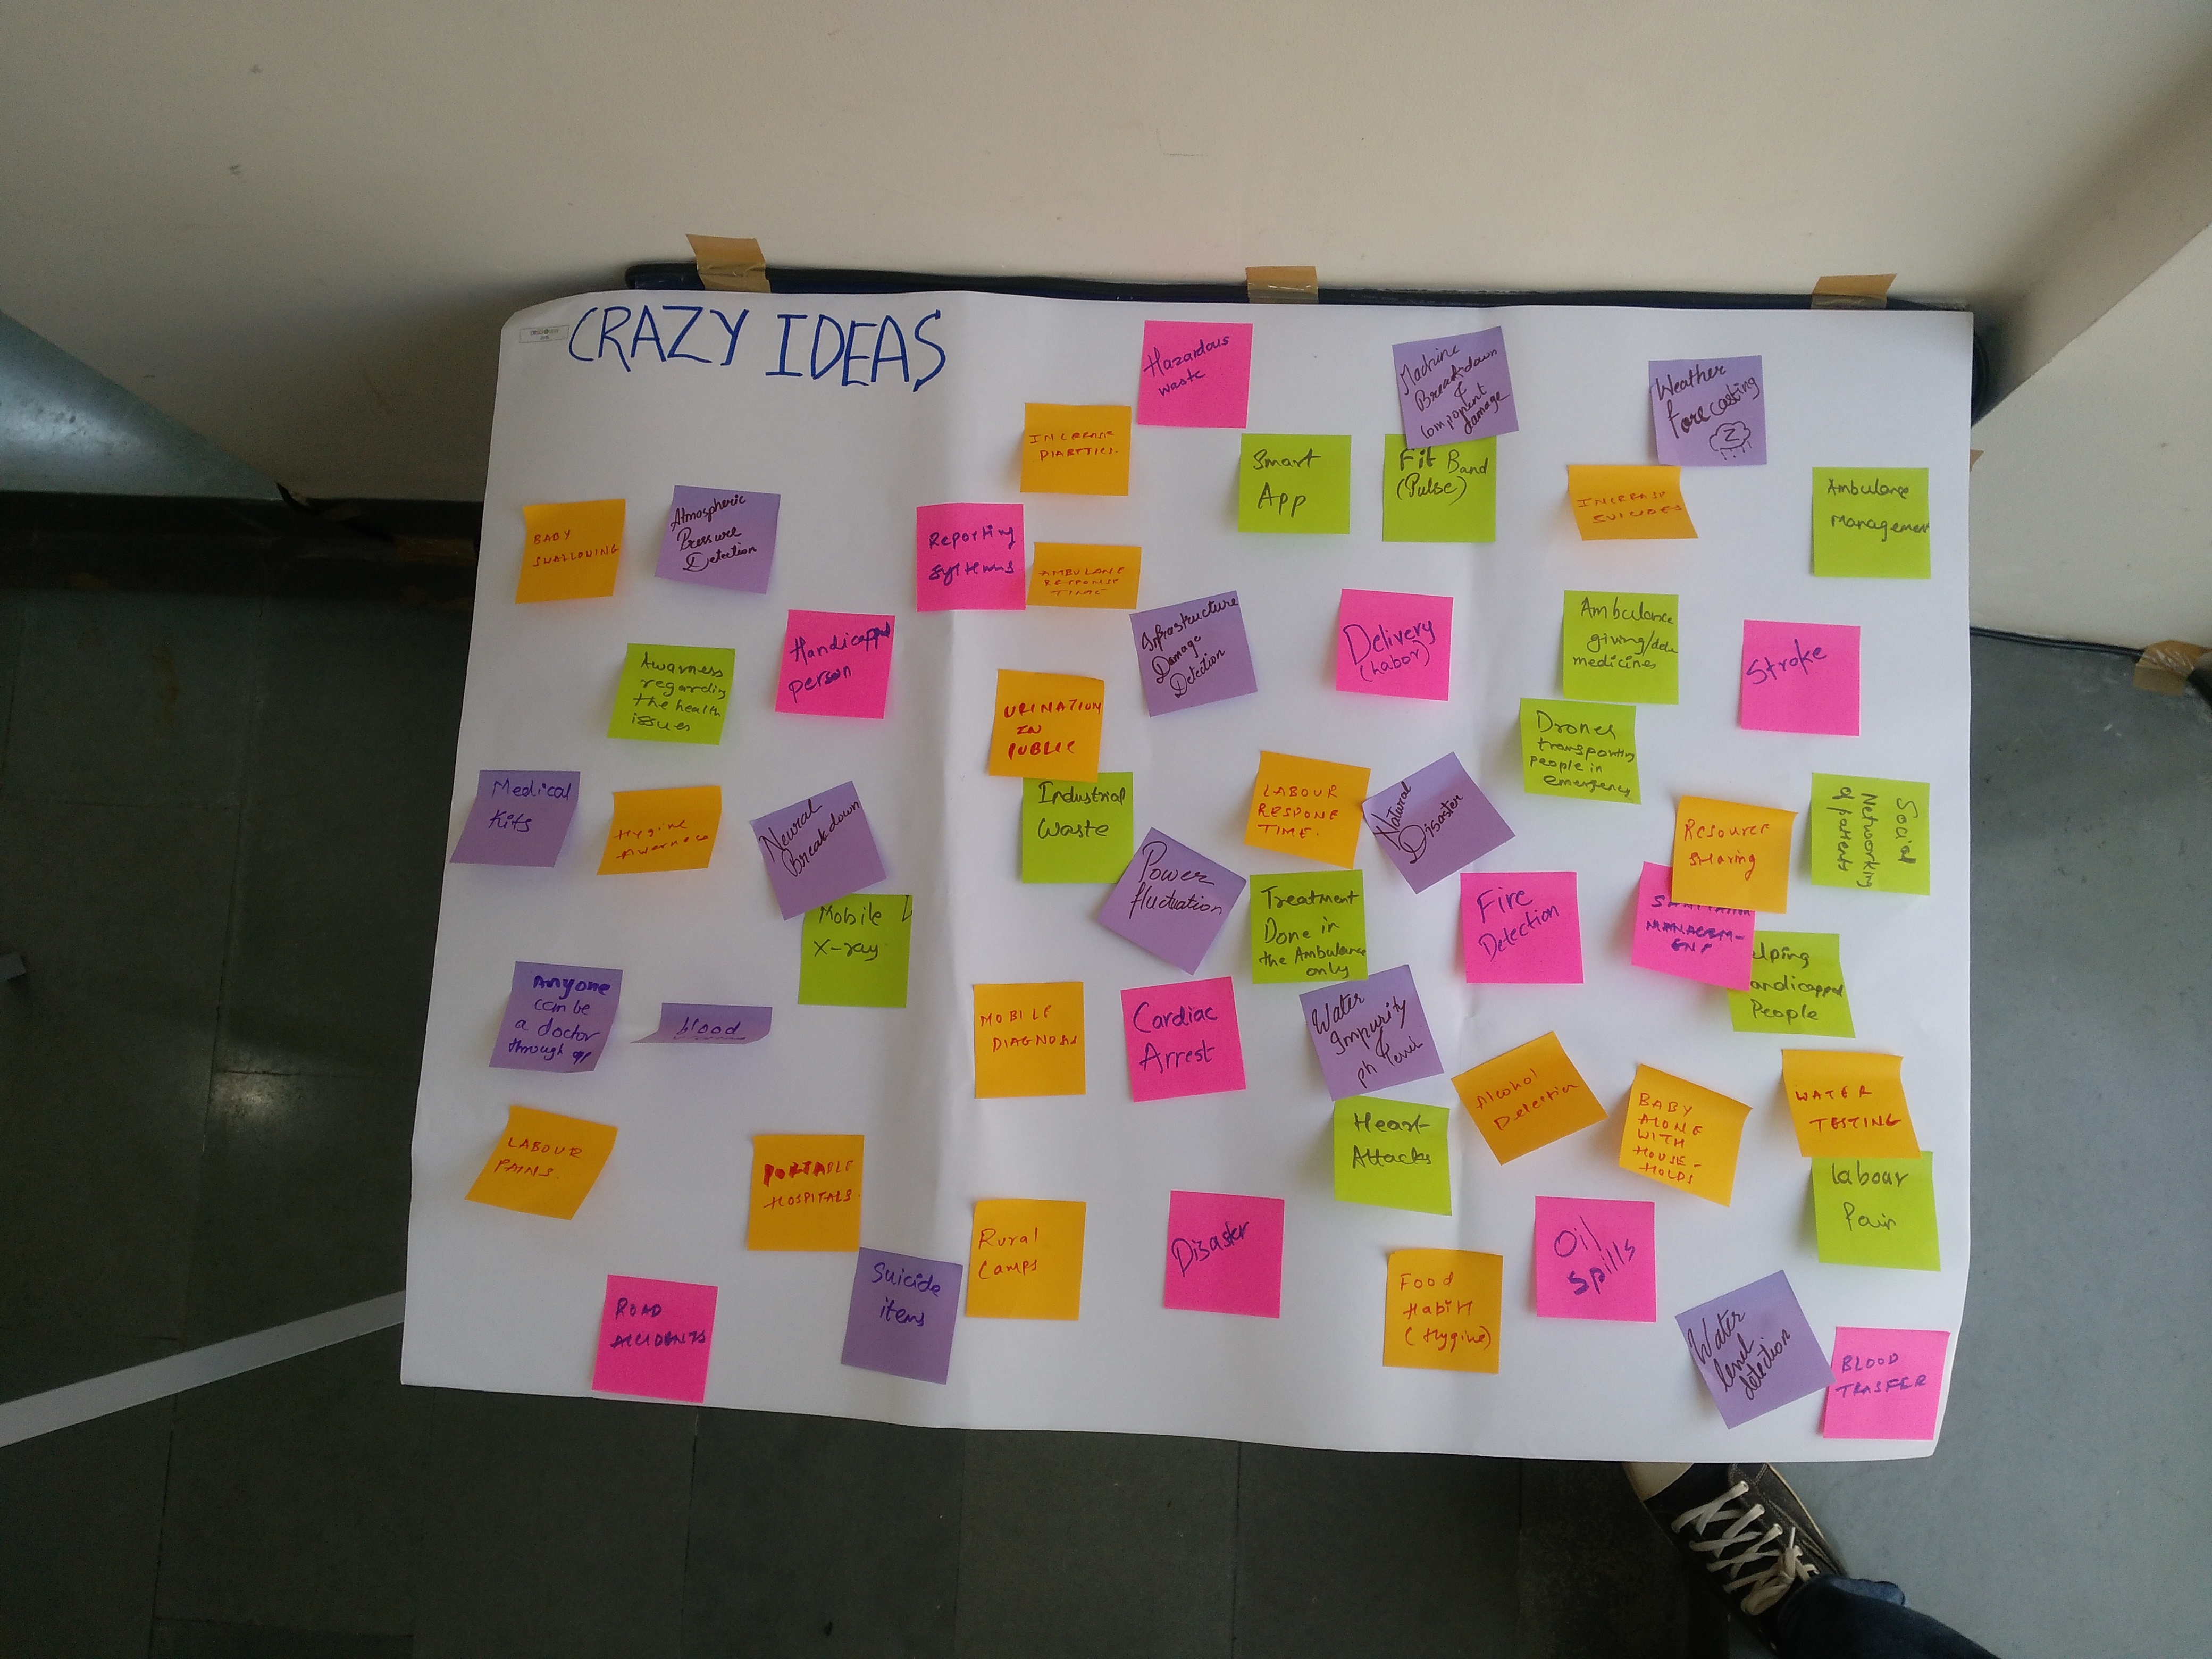 CRAZY IDEAS
Hazardous
waste
Machine
Breakdown
&
Component
damage
Weather
Forecasting
INCREASE
DIABETICS.
Smart
App
Fit Band
(Pulse)
INCREASE
SUICIDES
Ambulance
Management
BABY
SWALLOWING
Atmospheric
Pressure
Detection
Reporting
systems
AMBULANCE
RESPONSE
TIME
Infrastructure
Damage
Detection
Delivery
(Labor)
Ambulance
giving/
medicines
Stroke
Awarness
regarding
the health
issues
Handicapped
person
URINATION
IN
PUBLIC
Drones
transporting
people in
emergency
Medical
Kits
Hygine
Awarness
Neural
Breakdown
Industrial
Waste
LABOUR
RESPONE
TIME.
Natural
Disaster
Resource
Sharing
Social
Networking
of patients
Mobile
X-ray
Power
fluctuation
Treatment
Done in
the Ambulance
only
Fire
Detection
SANITATION
MANAGEM-
ENT
elping
andicapped
People
Anyone
can be
a doctor
through app
blood
MOBILE
DIAGNOSIS
Cardiac
Arrest
Water
Impurity
ph level
Alcohol
Detection
BABY
ALONE
WITH
HOUSE-
HOLDS
WATER
TESTING
LABOUR
PAINS.
PORTABLE
HOSPITALS.
Heart
Attacks
Labour
Pain
Suicide
items
Rural
Camps
Disaster
Food
Habit
(Hygine)
Oil
Spills
ROAD
ACCIDENTS
Water
level
detection
BLOOD
TRASFER